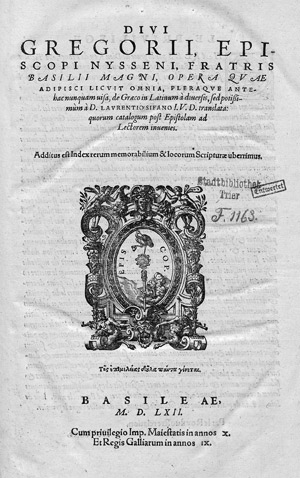 DIVI
GREGORII, EPI-
SCOPI NYSSENI, FRATRIS
BASILII MAGNI, OPERA QVAE
ADIPISCI LICVIT OMNIA, PLERAQVE ANTE-
hac nunquam uisa, de Græco in Latinum à diuersis, sed potissi-
mùm à D. LAVRENTIO SIFANO I. V. D. translata:
quorum catalogum post Epistolam ad
Lectorem inuenies.
Additus est Index rerum memorabilium & locorum Scripturæ uberrimus.
Stadtbibliothek
Trier
Entwertet
F. 1163.
EPIS
COP.
BASILEAE,
M. D. LXII.
Cum priuilegio Imp. Maiestatis in annos x.
Et Regis Galliarum in annos ix.